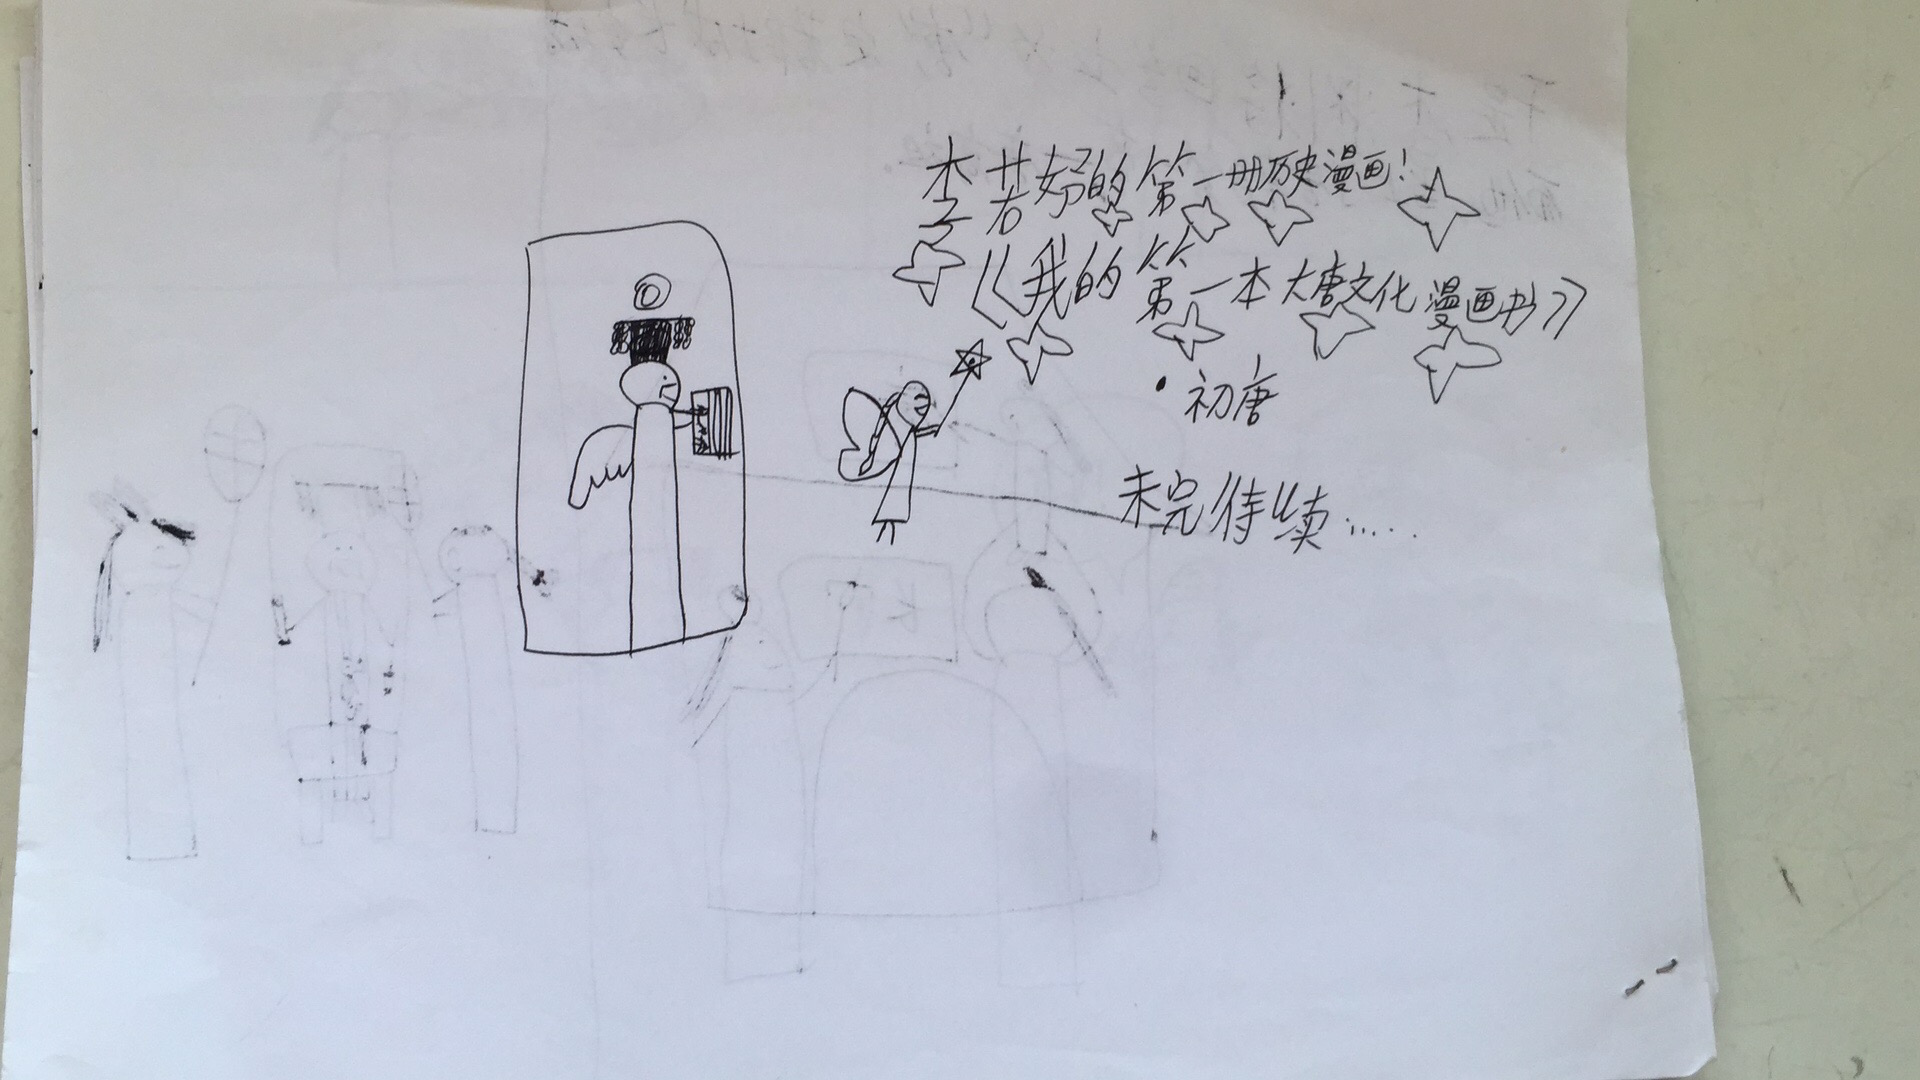 李若妤的第一册历史漫画！
《我的第一本大唐文化漫画书》
•初唐
未完待续……